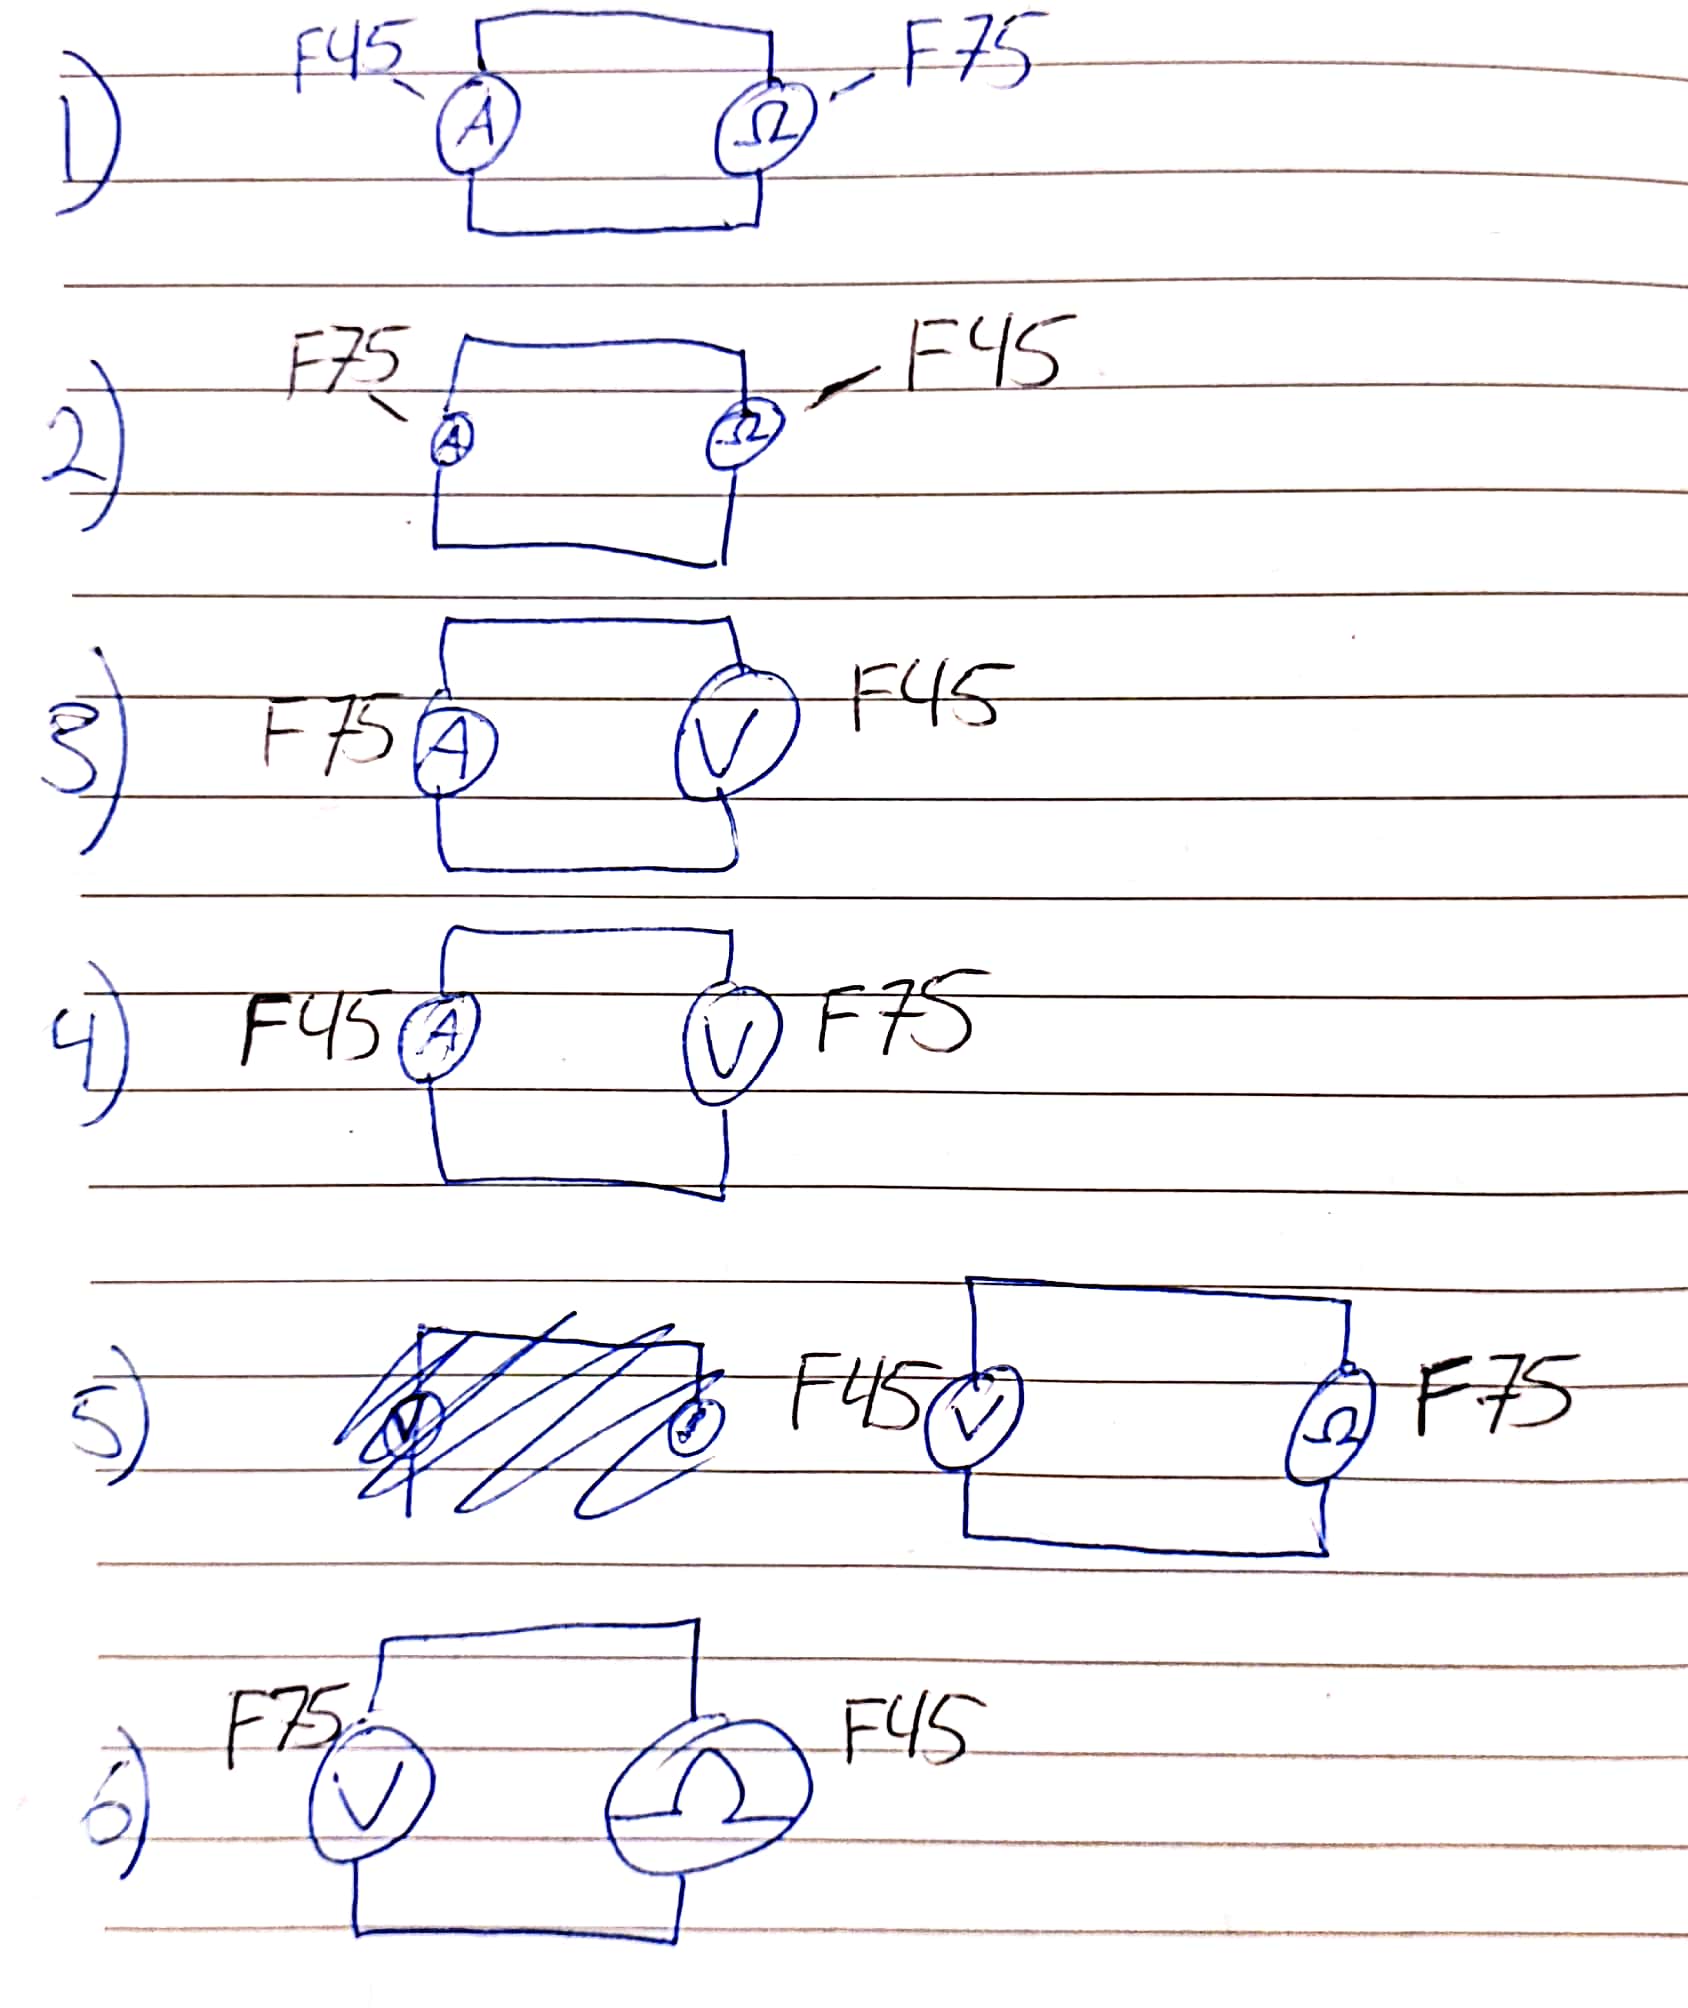 1) F45 A Ω F75
2) F75 A Ω F45
3) F75 A V F45
4) F45 A V F75
5) V F45 V Ω F75
6) F75 V Ω F45